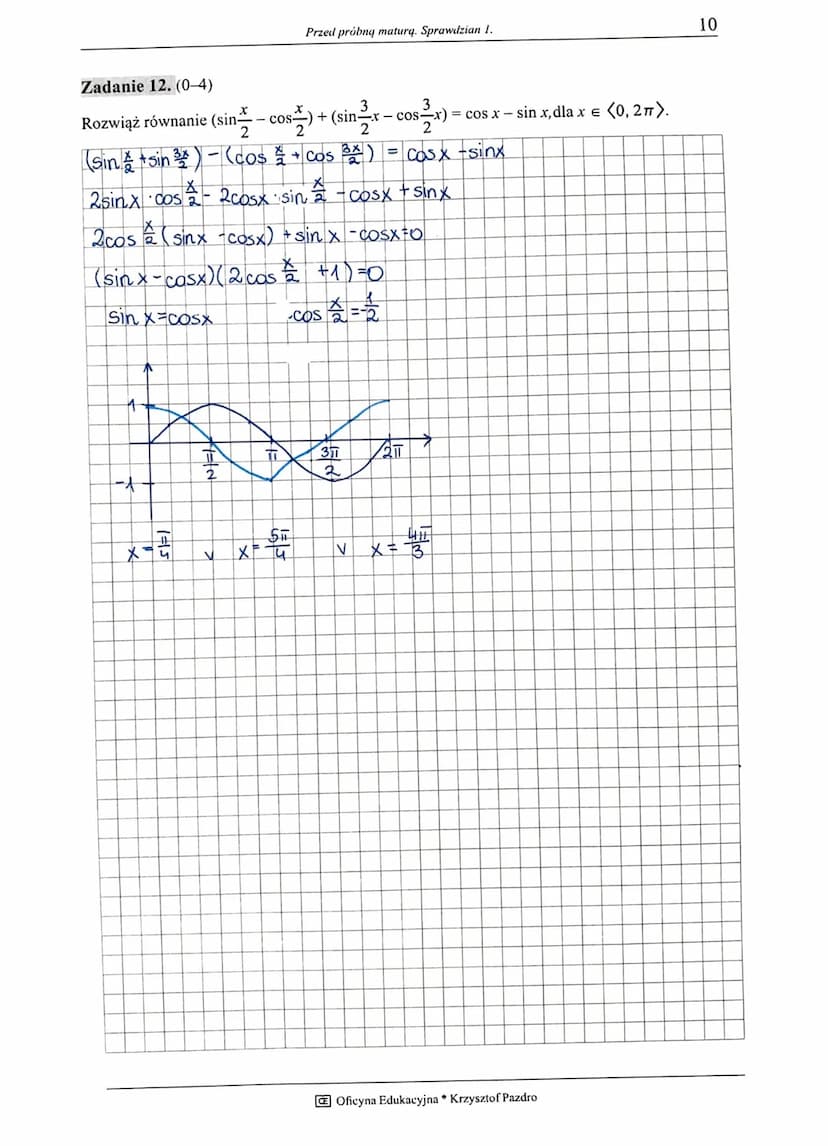 Przed próbną maturą. Sprawdzian 1.
10
Zadanie 12. (0–4)
Rozwiąż równanie (sin x/2 – cos x/2) + (sin 3/2 x – cos 3/2 x) = cos x – sin x, dla x ∈ ⟨0, 2π⟩.
(sin x/2 + sin 3x/2) - (cos x/2 + cos 3x/2) = cosx - sinx
2sinx · cos x/2 - 2cosx · sin x/2 - cosx + sinx
2cos x/2 (sinx - cosx) + sinx - cosx = 0
(sinx - cosx)(2cos x/2 + 1) = 0
sinx = cosx cos x/2 = -1/2
1
π/2 π 3π/2 2π
-1
x = π/4 v x = 5π/4 v x = 4π/3
Œ Oficyna Edukacyjna * Krzysztof Pazdro